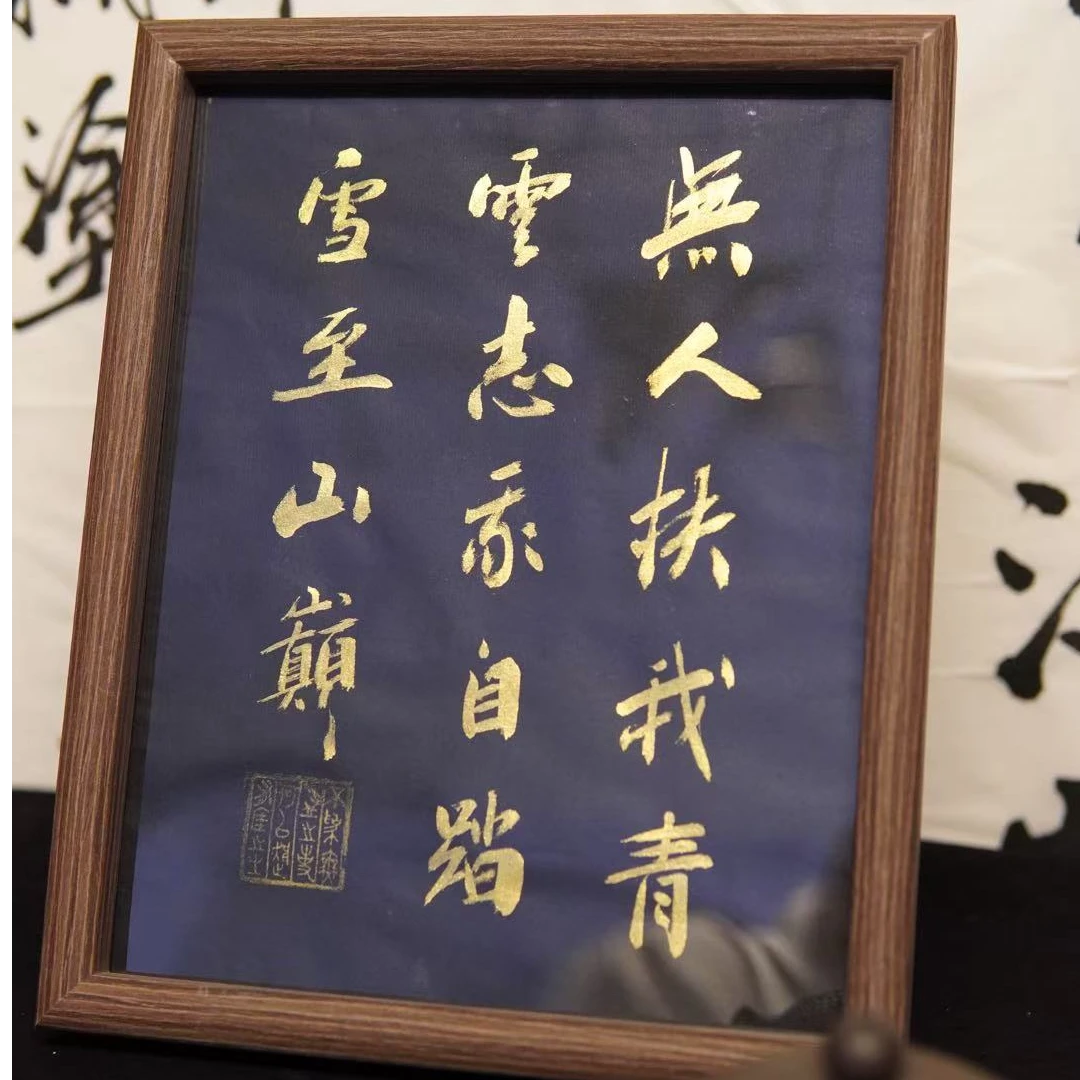 無人扶我青
雲志我自踏
雪至山巔